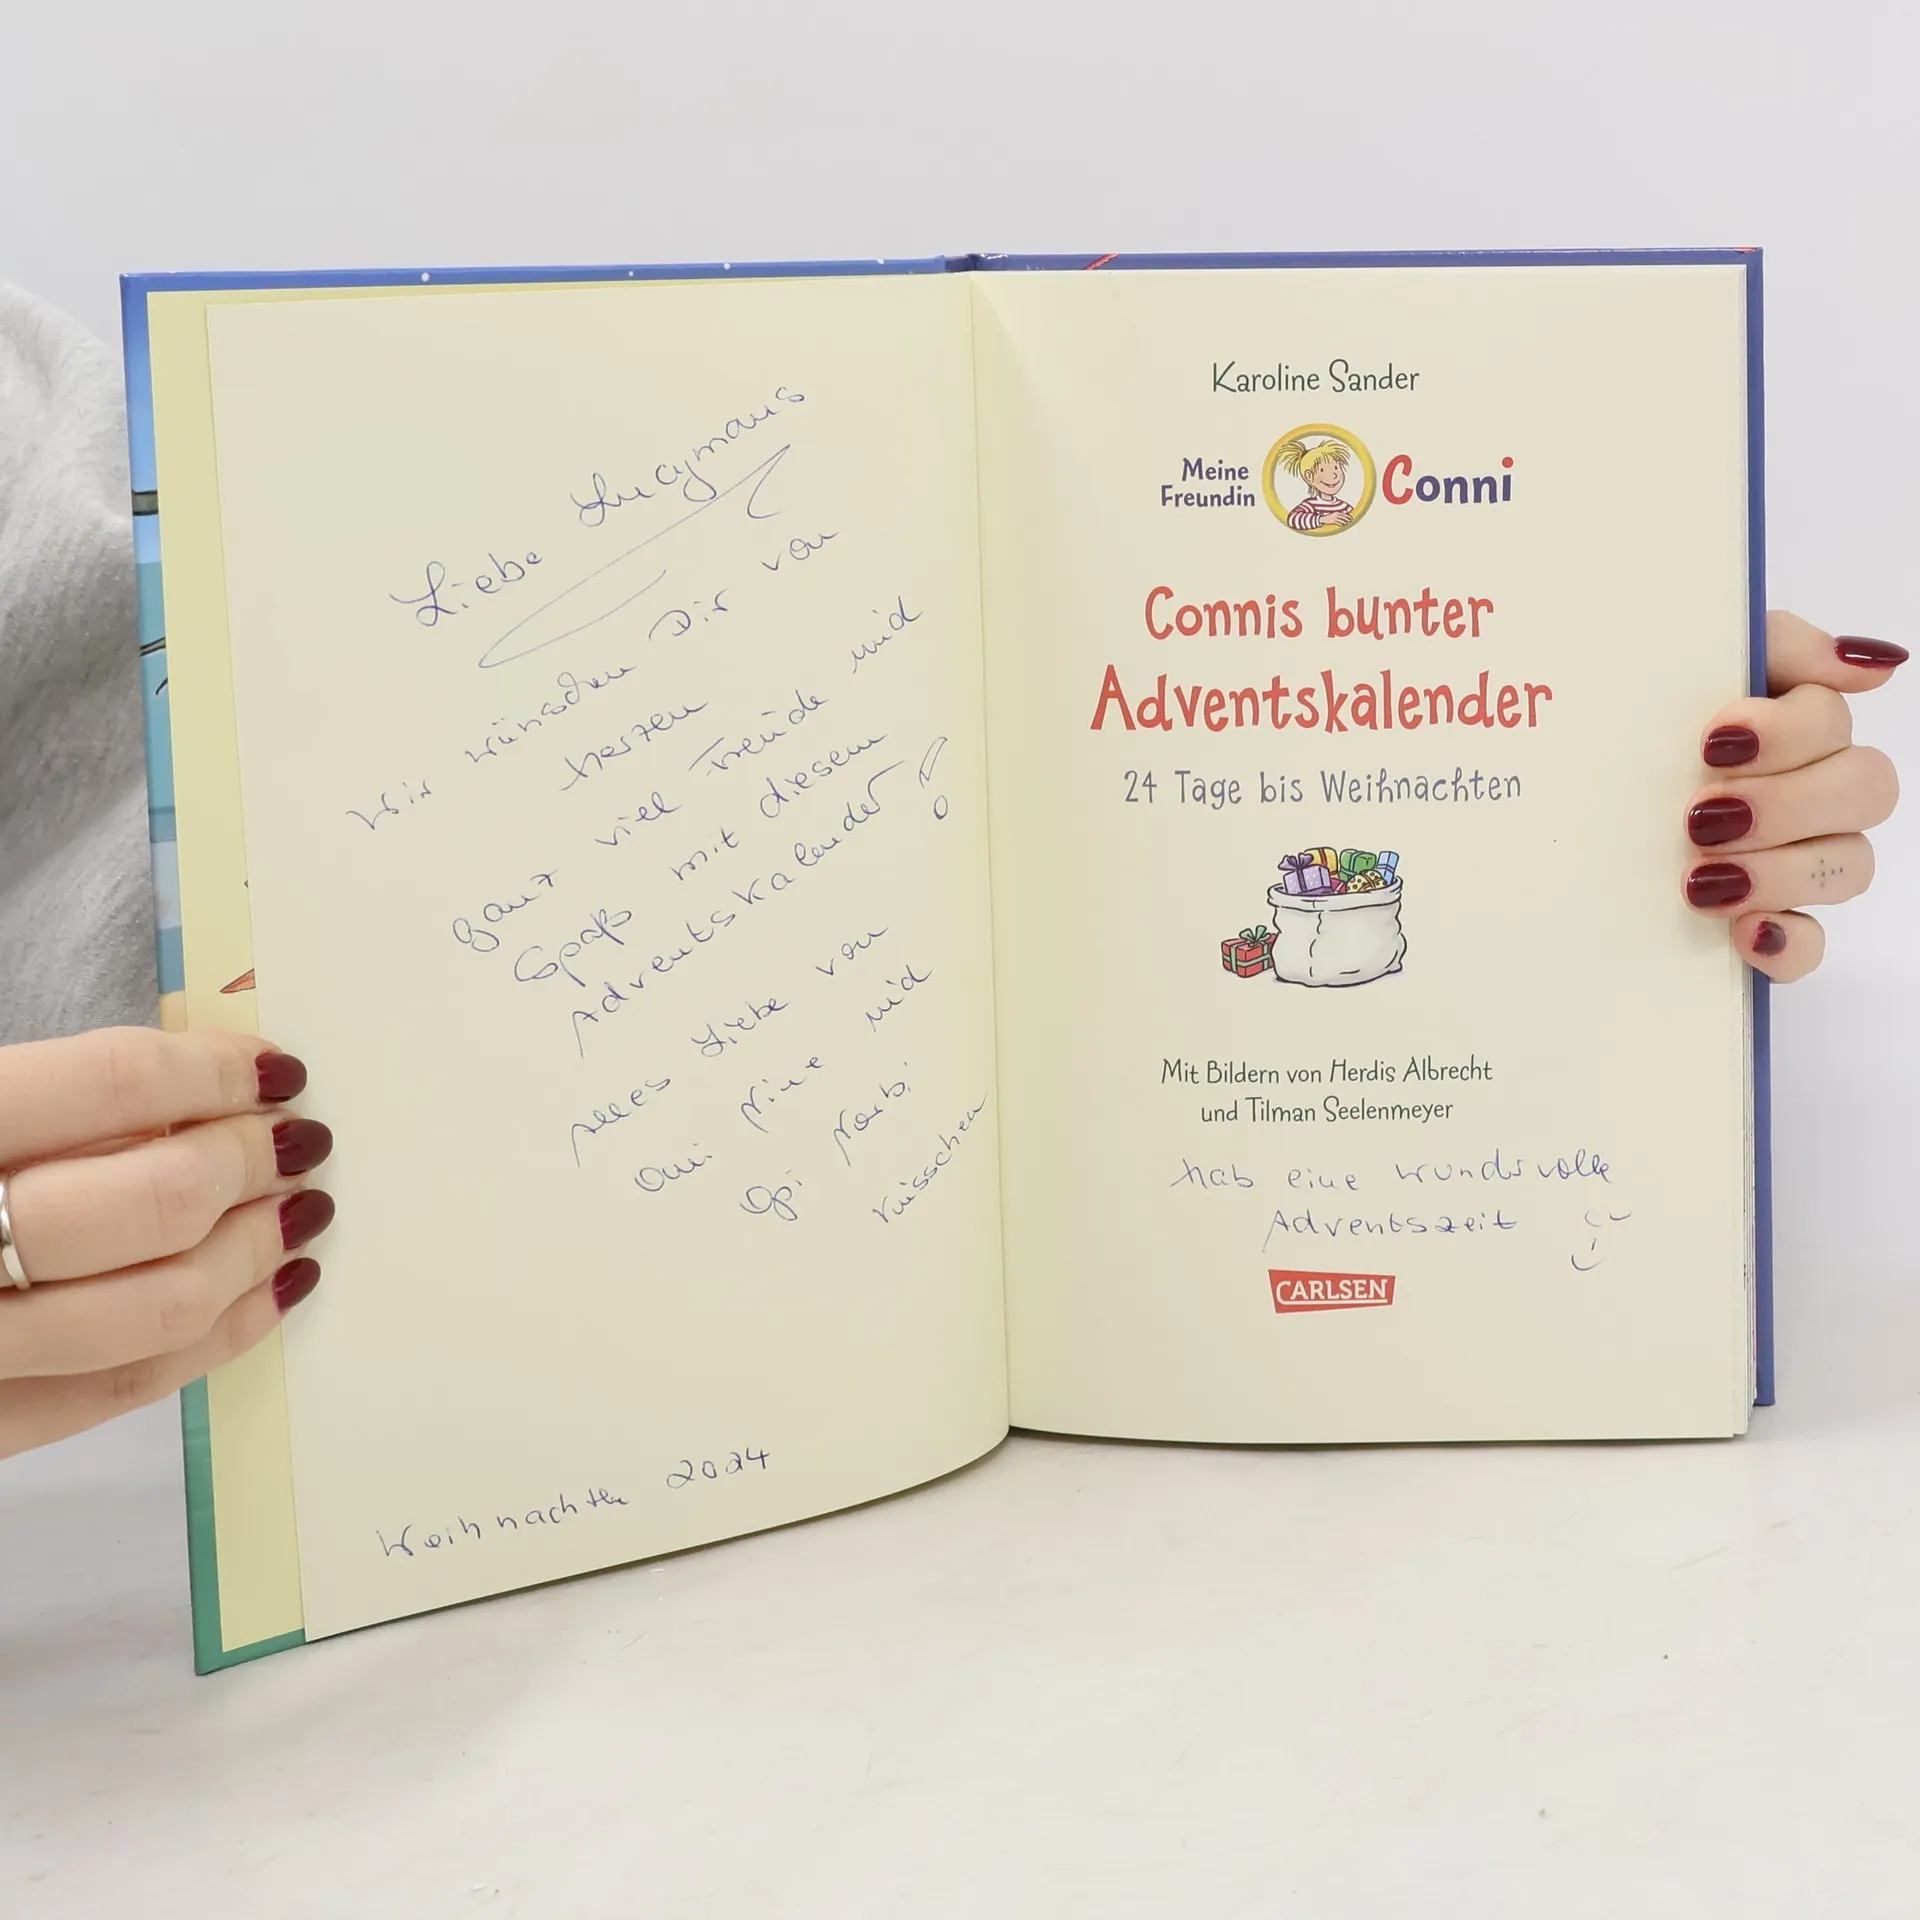 Liebe Lucymaus
Wir wünschen Dir von
Herzen
ganz viel Freude und
Spaß mit diesem
Adventskalender!
Alles Liebe von
Omi Nine und
Opi Norbi
Küsschen
Weihnachten 2024
Karoline Sander
Meine Freundin Conni
Connis bunter
Adventskalender
24 Tage bis Weihnachten
Mit Bildern von Herdis Albrecht
und Tilman Seelenmeyer
Hab eine wundervolle
Adventszeit
CARLSEN